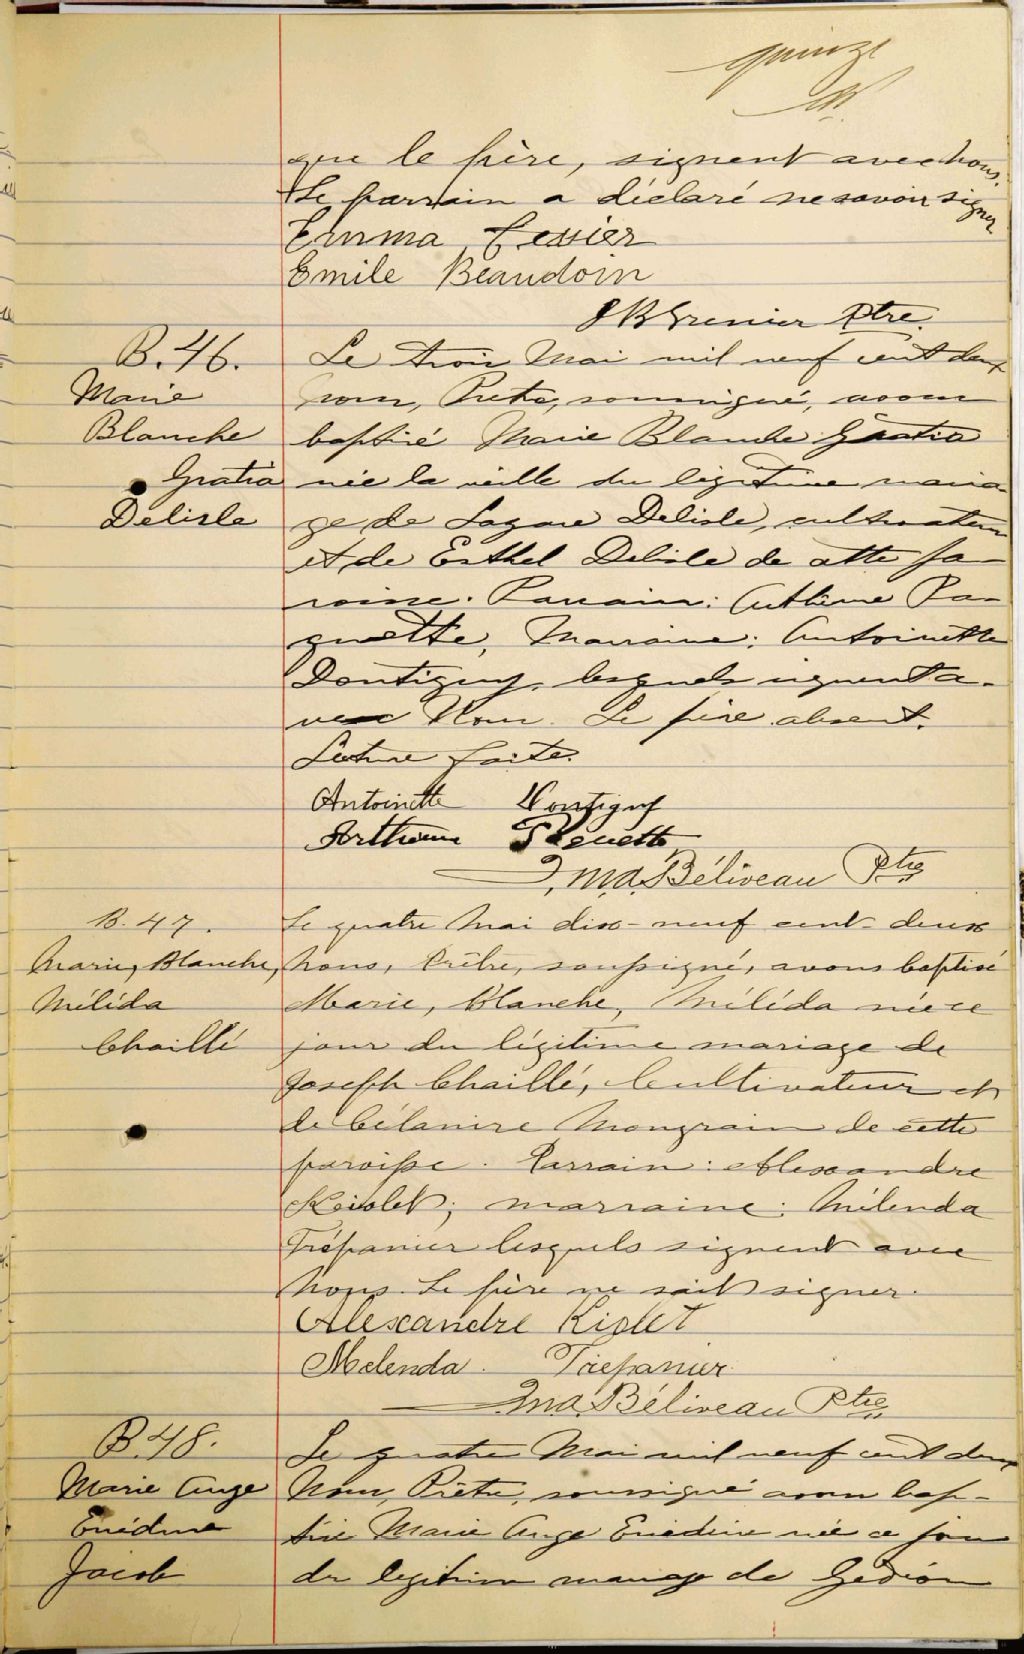 quinze
que le père, signent avec nous.
Le parrain a déclaré ne savoir signer
Emma Tessier
Emile Beaudoin
JB Grenier Ptre.
B. 46.
Marie
Blanche
Gratia
Delisle
Le trois Mai mil neuf cent deux
nous, Prêtre, soussigné, avons
baptisé Marie Blanche Gratia
née la veille du légitime maria-
ge de Lazare Delisle, cultivateur
et de Esthel Delisle de cette pa-
roisse. Parrain: Arthème Pa-
quette, Marraine: Antoinette
Dontigny, lesquels signent a-
vec Nous. Le père absent.
Lecture faite.
Antoinette Dontigny
Arthème
J. M. A. Béliveau Ptre
B. 47.
Marie, Blanche,
Méléda
Chaillé
Le quatre Mai dix-neuf cent-deux
nous, Prêtre, soussigné, avons baptisé
Marie, Blanche, Méléda née ce
jour du légitime mariage de
Joseph Chaillé, Cultivateur et
de Célanire Mongrain de cette
paroisse. Parrain: Alexandre
marraine: Mélenda
Trépanier lesquels signent avec
Nous. Le père ne sait signer.
Alexandre Riolet
Melenda Trepanier
J. M. A. Béliveau Ptre
B. 48.
Marie Ange
Enédine
Jacob
Le quatre Mai mil neuf cent deux
Nous, Prêtre, soussigné avons bap-
tisé Marie Ange Enédine née ce jour
du legitime mariage de Gédéon